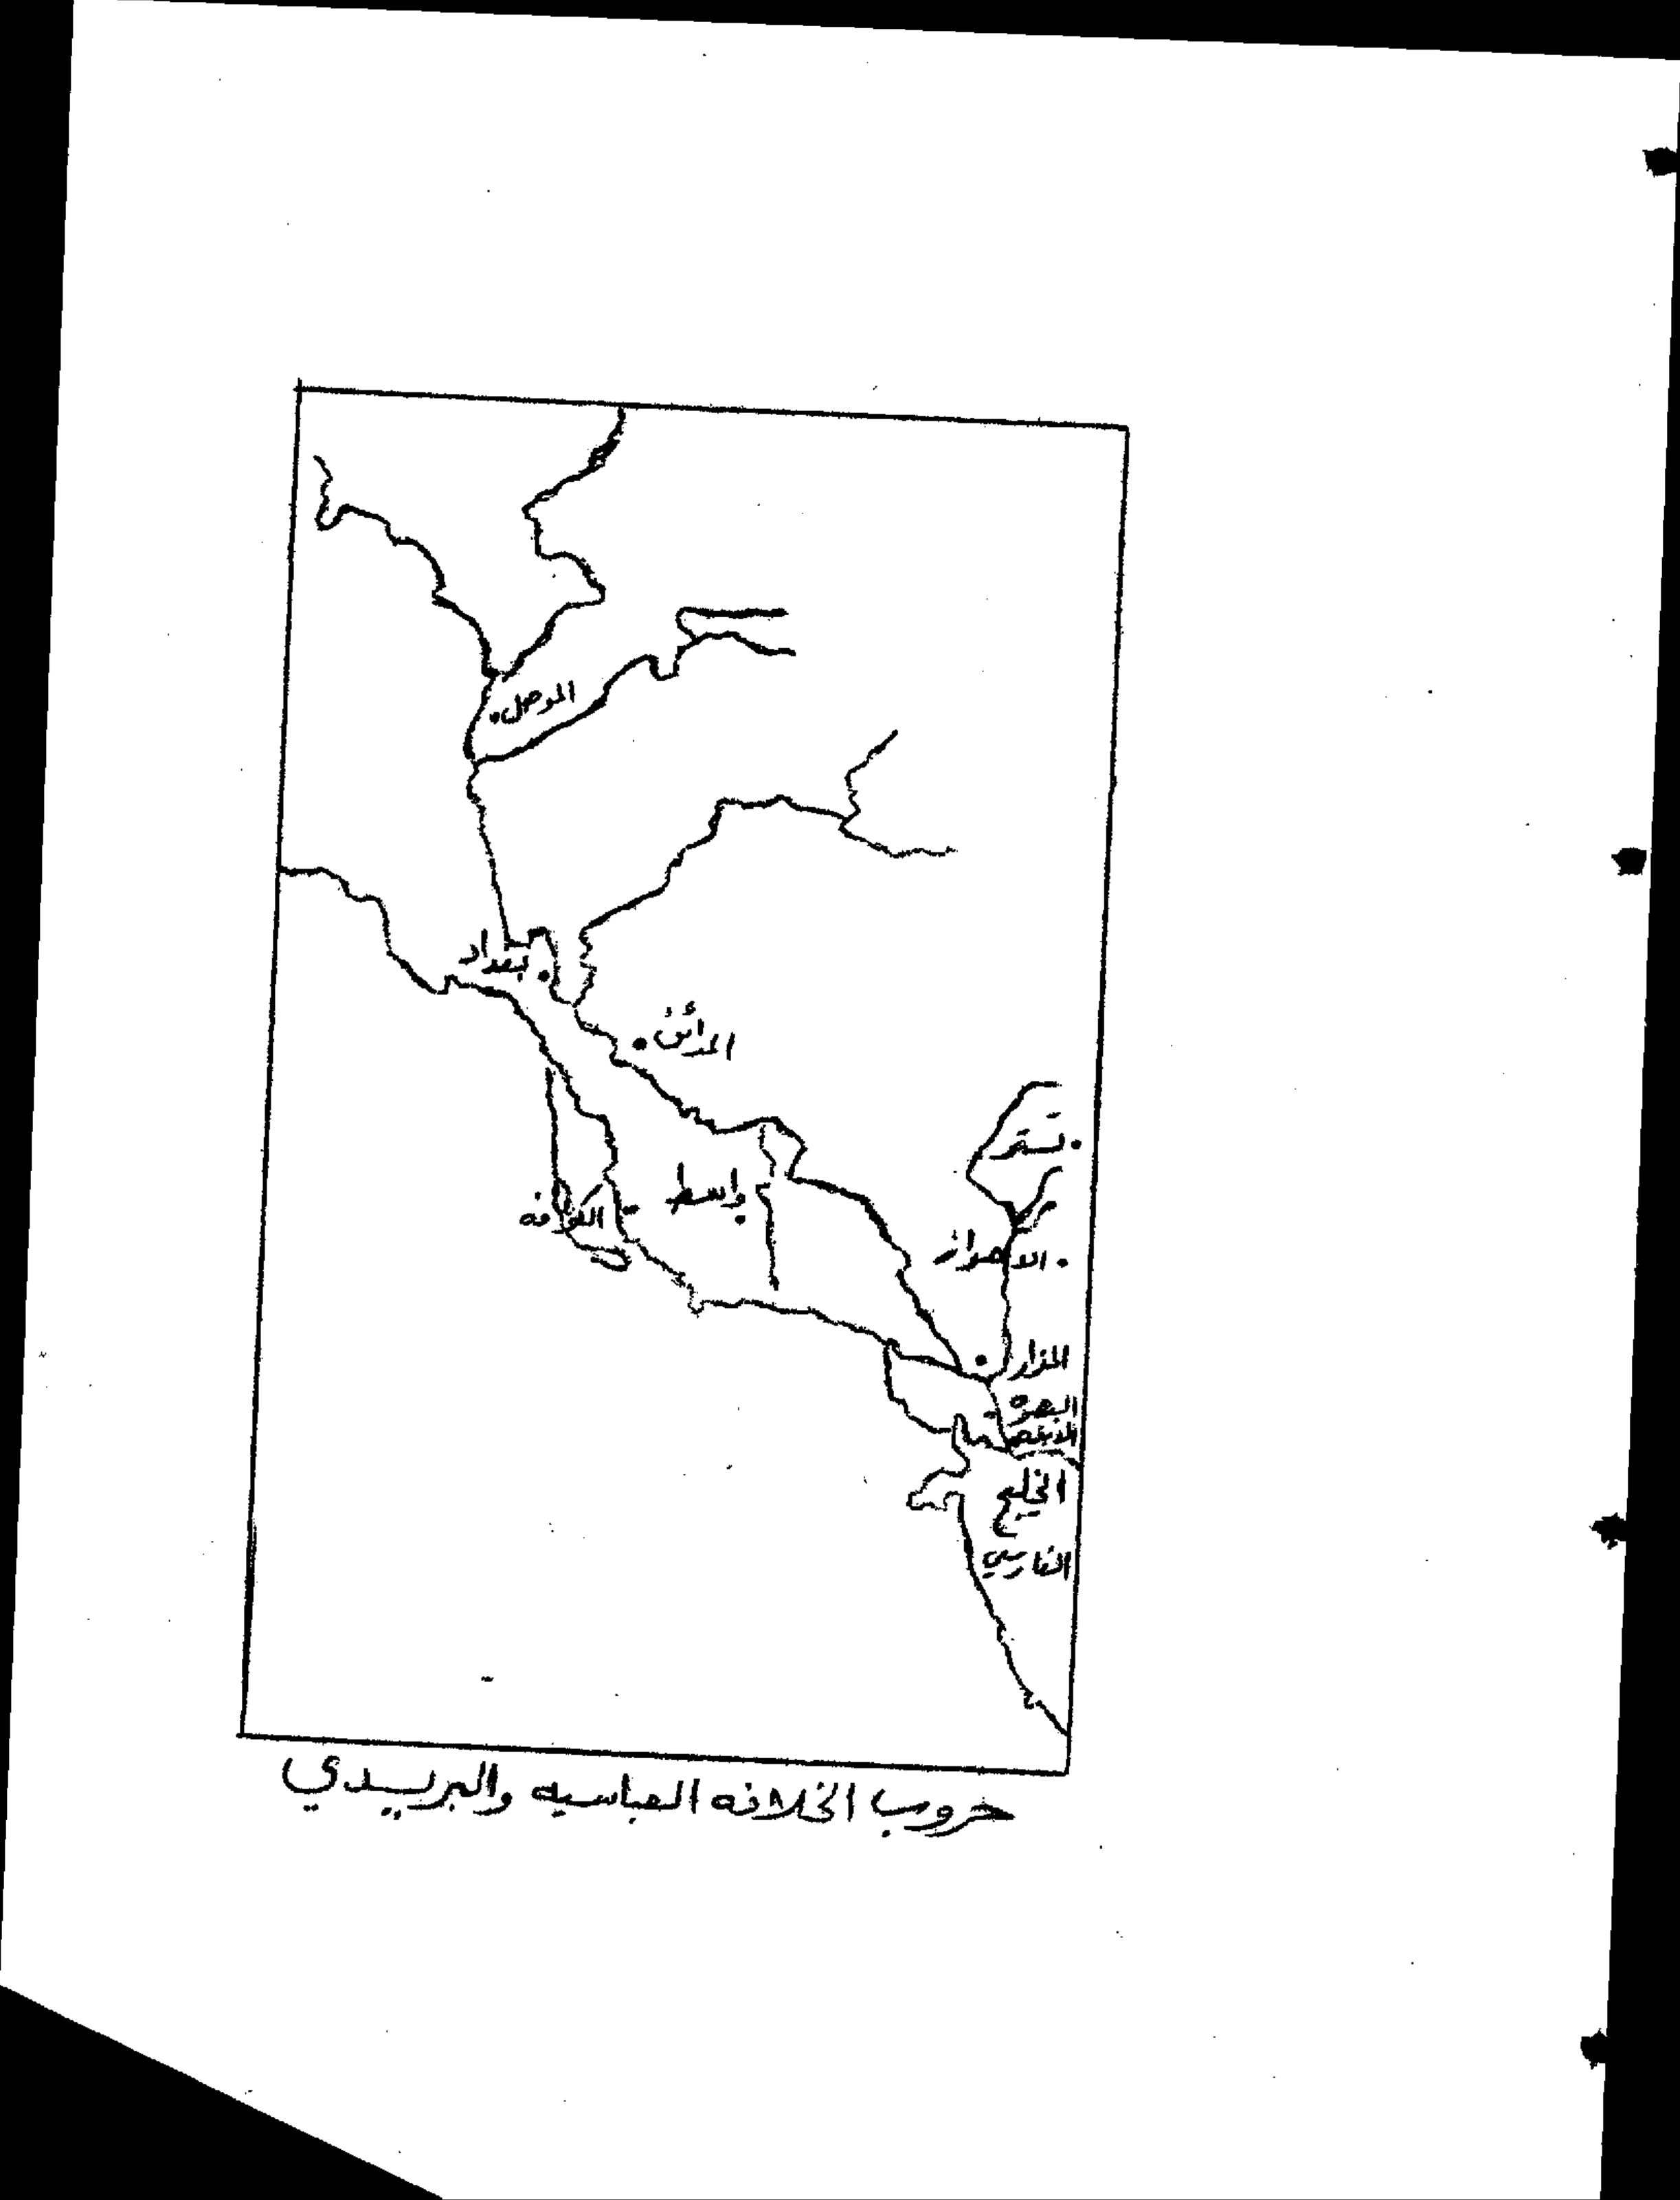 الموصل
بغداد
المدائن
تستر
واسط
الكوفه
الاهواز
المزار
البصره
الابله
الخليج
الفارسي
حروب الخلافه العباسيه والبريدي